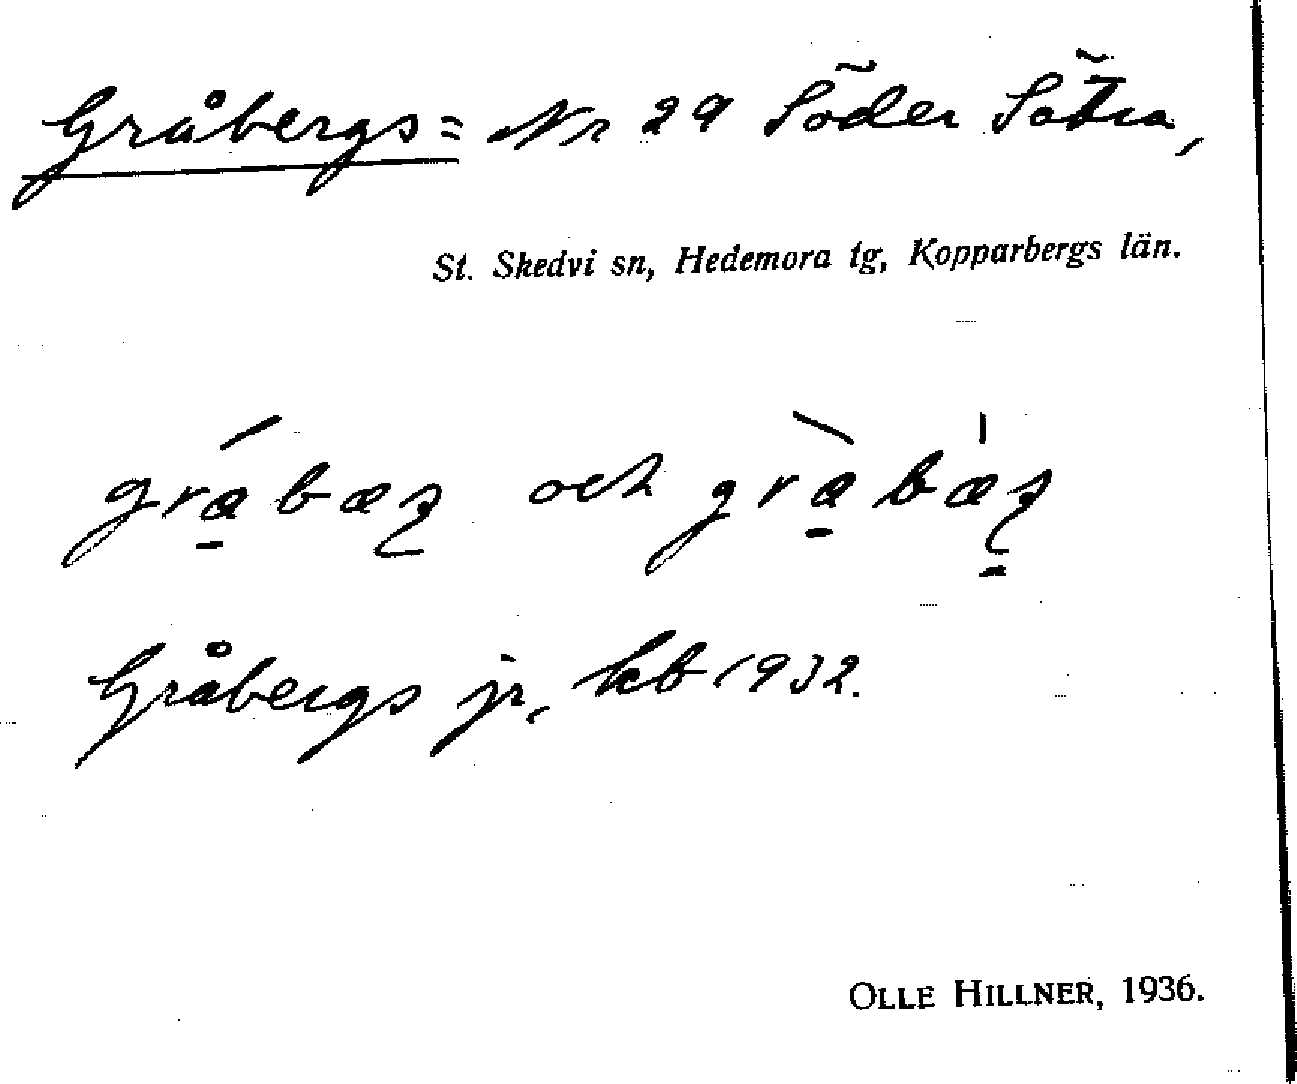 Gråbergs= Nr 29 Söder Sätra,
St. Skedvi sn, Hedemora tg, Kopparbergs län.
och
Gråbergs jr, kb 1932.
OLLE HILLNER, 1936.